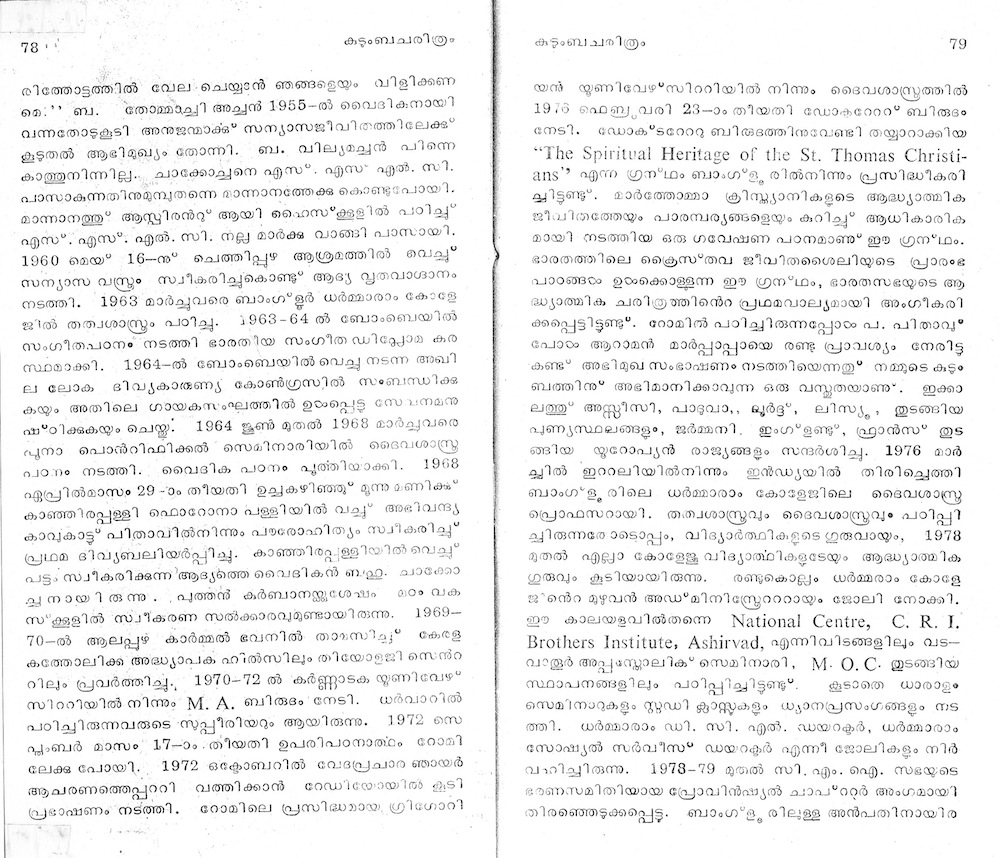 78
കുടുംബചരിത്രം
രിത്തോട്ടത്തിൽ വേല ചെയ്യാൻ ഞങ്ങളെയും വിളിക്കണ
മെ.'' ബ. തോമ്മാച്ചി അച്ചൻ 1955-ൽ വൈദികനായി
വന്നതോടുകൂടി അനുജന്മാക്ക് സന്യാസജീവിതത്തിലേക്ക്
കൂടുതൽ ആഭിമുഖ്യം തോന്നി. ബ. വില്യച്ചേൻ പിന്നെ
കാത്തുനിന്നില്ല. ചാക്കോച്ചനെ എസ്. എസ് എൽ. സി.
പാസാകുന്നതിനുമുമ്പുതന്നെ മാന്നാനത്തേക്കു കൊണ്ടുപോയി.
മാന്നാനത്ത് ആസ്പിരൻറ് ആയി ഹൈസ്ക്കൂളിൽ പഠിച്ച്
എസ്. എസ്. എൽ. സി. നല്ല മാർക്കു വാങ്ങി പാസായി.
1960 മെയ് 16-ന് ചെത്തിപ്പുഴ ആശ്രമത്തിൽ വെച്ച്
സന്യാസ വസ്ത്രം സ്വീകരിച്ചുകൊണ്ട് ആദ്യ വ്രതവാഗ്ദാനം
നടത്തി. 1963 മാർച്ചുവരെ ബാംഗ്ളൂർ ധർമ്മാരാം കോളേ
ജിൽ തത്വശാസ്ത്രം പഠിച്ചു. 1963-64 ൽ ബോംബെയിൽ
സംഗീതപഠനം നടത്തി ഭാരതീയ സംഗീത ഡിപ്ലോമ കര
സ്ഥമാക്കി. 1964-ൽ ബോംബെയിൽ വെച്ചു നടന്ന അഖി
ല ലോക ദിവ്യകാരുണ്യ കോൺഗ്രസിൽ സംബന്ധിക്കു
കയും അതിലെ ഗായകസംഘത്തിൽ ഉൾപ്പെട്ടു സേവനമനു
ഷ്ഠിക്കുകയും ചെയ്തു. 1964 ജൂൺ മുതൽ 1968 മാർച്ചുവരെ
പൂനാ പൊൻറിഫിക്കൽ സെമിനാരിയിൽ ദൈവശാസ്ത്ര
പഠനം നടത്തി. വൈദിക പഠനം പൂത്തിയാക്കി. 1968
ഏപ്രിൽമാസം 29-ാം തീയതി ഉച്ചകഴിഞ്ഞ് മൂന്നു മണിക്ക്
കാഞ്ഞിരപ്പള്ളി ഫൊറോനാ പള്ളിയിൽ വച്ച് അഭിവന്ദ്യ
കാവുകാട്ട് പിതാവിൽനിന്നും പൗരോഹിത്യം സ്വീകരിച്ച്
പ്രഥമ ദിവ്യബലിയർപ്പിച്ചു. കാഞ്ഞിരപ്പള്ളിയിൽ വെച്ച്
പട്ടം സ്വീകരിക്കുന്ന ആദ്യത്തെ വൈദികൻ ബഹു. ചാക്കോ
ച്ചനായിരുന്നു. പുത്തൻ കുർബാനസ്തുശേഷം മഠം വക
സ്ക്കൂളിൽ സ്വീകരണ സൽക്കാരവുമുണ്ടായിരുന്നു. 1969-
70-ൽ ആലപ്പുഴ കാർമ്മൽ ഭവനിൽ താമസിച്ച് കേരള
കത്തോലിക്ക അദ്ധ്യാപക ഹിൽസിലും തിയോളജി സെൻറ
റിലും പ്രവർത്തിച്ചു. 1970-72 ൽ കർണ്ണാടക യൂണിവേഴ്
സിററിയിൽ നിന്നും M. A. ബിരുദം നേടി. ധർവാറിൽ
പഠിച്ചിരുന്നവരുടെ സുപ്പീരിയറും ആയിരുന്നു. 1972 സെ
പ്തംബർ മാസം 17-ാം തീയതി ഉപരിപഠനാത്ഥം റോമി
ലേക്കു പോയി. 1972 ഒക്ടോബറിൽ വേദപ്രചാര ഞായർ
ആചരണത്തെപ്പററി വത്തിക്കാൻ റേഡിയോയിൽ കൂടി
പ്രഭാഷണം നടത്തി. റോമിലെ പ്രസിദ്ധമായ ഗ്രിഗോറി
കുടുംബചരിത്രം
79
യൻ യൂണിവേഴ്സിററിയിൽ നിന്നും ദൈവശാസ്ത്രത്തിൽ
1976 ഫെബ്രുവരി 23-ാം തീയതി ഡോക്ടറേററ് ബിരുദം
നേടി. ഡോക്ടറേററു ബിരുദത്തിനുവേണ്ടി തയ്യാറാക്കിയ
“The Spiritual Heritage of the St. Thomas Christi-
ans’’ എന്ന ഗ്രന്ഥം ബാംഗ്ളൂരിൽനിന്നും പ്രസിദ്ധീകരി
ച്ചിട്ടുണ്ട്. മാർത്തോമ്മാ ക്രിസ്ത്യാനികളുടെ ആദ്ധ്യാത്മിക
ജീവിതത്തേയും പാരമ്പര്യങ്ങളെയും കുറിച്ച് ആധികാരിക
മായി നടത്തിയ ഒരു ഗവേഷണ പഠനമാണ് ഈ ഗ്രന്ഥം.
ഭാരതത്തിലെ ക്രൈസ്തവ ജീവിതശൈലിയുടെ പ്രാരംഭ
പാഠങ്ങൾ ഉൾക്കൊള്ളുന്ന ഈ ഗ്രന്ഥം, ഭാരതസഭയുടെ ആ
ദ്ധ്യാത്മിക ചരിത്രത്തിൻെറ പ്രഥമവാല്യമായി അംഗീകരി
ക്കപ്പെട്ടിട്ടുണ്ട്. റോമിൽ പഠിച്ചിരുന്നപ്പോൾ പ. പിതാവു്
പോൾ ആറാമൻ മാർപ്പാപ്പായെ രണ്ടു പ്രാവശ്യം നേരിട്ടു
കണ്ട് അഭിമുഖ സംഭാഷണം നടത്തിയെന്നത് നമ്മുടെ കുടും
ബത്തിന് അഭിമാനിക്കാവുന്ന ഒരു വസ്തുതയാണ്. ഇക്കാ
ലത്ത് അസ്സീസി, പാദുവാ,, ലൂർദ്ദ്, ലിസ്യൂ, തുടങ്ങിയ
പുണ്യസ്ഥലങ്ങളും, ജർമ്മനി, ഇംഗ്ളണ്ട്, ഫ്രാൻസ് തുട
ങ്ങിയ യൂറോപ്യൻ രാജ്യങ്ങളും സന്ദർശിച്ചു. 1976 മാർ
ച്ചിൽ ഇററലിയിൽനിന്നും ഇൻഡ്യയിൽ തിരിച്ചെത്തി
ബാംഗ്ളൂരിലെ ധർമ്മാരാം കോളേജിലെ ദൈവശാസ്ത്ര
പ്രൊഫസറായി. തത്വശാസ്ത്രവും ദൈവശാസ്ത്രവും പഠിപ്പി
ച്ചിരുന്നതോടൊപ്പം, വിദ്യാർത്ഥികളുടെ ഗുരുവായും, 1978
മുതൽ എല്ലാ കോളേജു വിദ്യാർത്ഥികളുടേയും ആദ്ധ്യാത്മിക
ഗുരുവും കൂടിയായിരുന്നു. രണ്ടുകൊല്ലം ധർമ്മരാം കോളേ
ജിൻെറ മുഴുവൻ അഡ്മിനിസ്ട്രേറററായും ജോലി നോക്കി.
ഈ കാലയളവിൽതന്നെ National Centre, C. R. I.
Brothers Institute, Ashirvad, എന്നിവിടങ്ങളിലും വട-
വാതൂർ അപ്പസ്തോലിക് സെമിനാരി, M. O. C. തുടങ്ങിയ
സ്ഥാപനങ്ങളിലും പഠിപ്പിച്ചിട്ടുണ്ട്. കൂടാതെ ധാരാളം
സെമിനാറുകളും സ്റ്റഡി ക്ലാസ്സുകളും ധ്യാനപ്രസംഗങ്ങളും നട
ത്തി. ധർമ്മാരാം ഡി. സി. എൽ. ഡയറക്ടർ, ധർമ്മാരാം
സോഷ്യൽ സർവീസ് ഡയറക്ടർ എന്നീ ജോലികളും നിർ
വഹിച്ചിരുന്നു. 1978-79 മുതൽ സി. എം. ഐ. സഭയുടെ
ഭരണസമിതിയായ പ്രോവിൻഷ്യൽ ചാപ്റ്റർ അംഗമായി
തിരഞ്ഞെടുക്കപ്പെട്ടു. ബാംഗ്ളൂരിലുള്ള അൻപതിനായിര